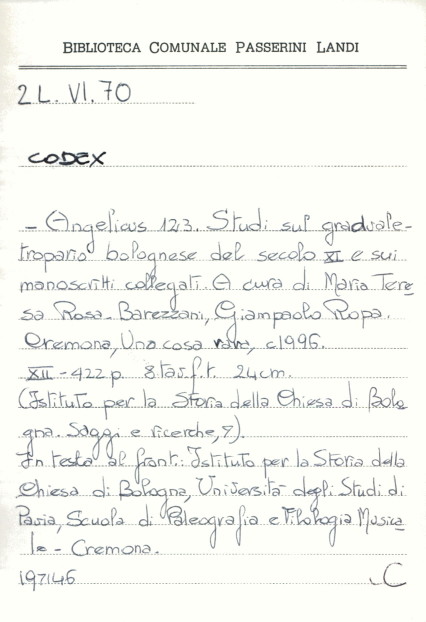 BIBLIOTECA COMUNALE PASSERINI LANDI
2L. VI. 70
CODEX
- Angelicus 123. Studi sul graduale-
tropario bolognese del secolo XI e sui
manoscritti collegati. A cura di Maria Tere
sa Rosa-Barezzani, Giampaolo Ropa.
Cremona, Una cosa rara, c1996.
XII - 422 p. 8 tav. f.t. 24 cm.
(Istituto per la Storia della Chiesa di Bolo
gna. Saggi e ricerche, 7).
In testa al front.: Istituto per la Storia della
Chiesa di Bologna, Università degli Studi di
Pavia, Scuola di Paleografia e Filologia Musica
le - Cremona.
197146 C